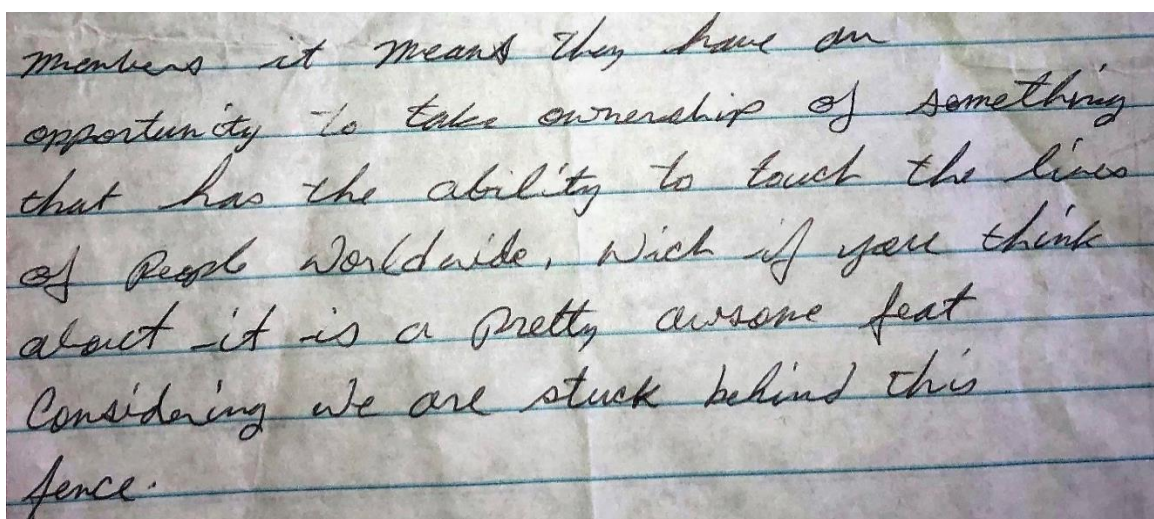 members it means they have an
opportunity to take ownership of something
that has the ability to touch the lives
of People Worldwide, Wich if you think
about it is a pretty awsome feat
Considering we are stuck behind this
fence.